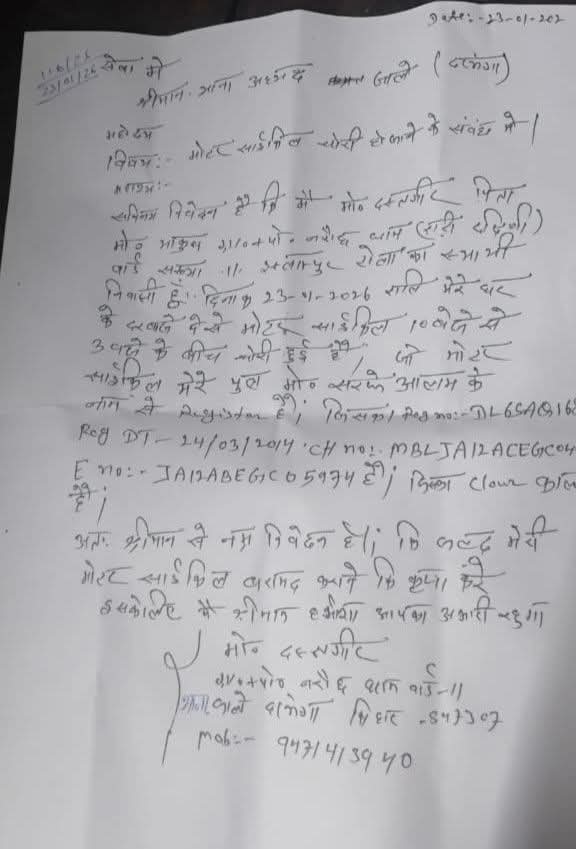 Date:- 23-01-202
116/26
23/01/26
सेवा में
श्रीमान थाना अध्यक्ष जाले (दरभंगा)
महोदय
विषय:- मोटर साईकिल चोरी हो जाने के संबंध में।
महाशय:-
सविनय निवेदन है कि मैं मो० दस्तगीर पिता
मो० ग्रा०+पो०
वार्ड संख्या 11 का स्थायी
निवासी हूँ। दिनांक 23-01-2026 रात्रि मेरे घर
के दरवाजे से मोटर साईकिल 10 बजे से
3 बजे के बीच चोरी हुई है, जो मोटर
साईकिल मेरे पुत्र मो० आलम के
नाम से Register है। जिसका Reg no:- DL6SAQ168
Reg DT- 24/03/2014 CH no:- MBLJA12ACEGC04
E no:- JA12ABEGC05974 है। जिसका Clour काल
है।
अतः श्रीमान से नम्र निवेदन है। कि जल्द मेरी
मोटर साईकिल बरामद कराने कि कृपा करें
इसके लिए मैं श्रीमान हमेशा आपका अभारी रहुगा
मो० दस्तगीर
ग्रा०+पो० वार्ड-11
थाना जाले दरभंगा बिहार -847307
Mob:- 9471413940